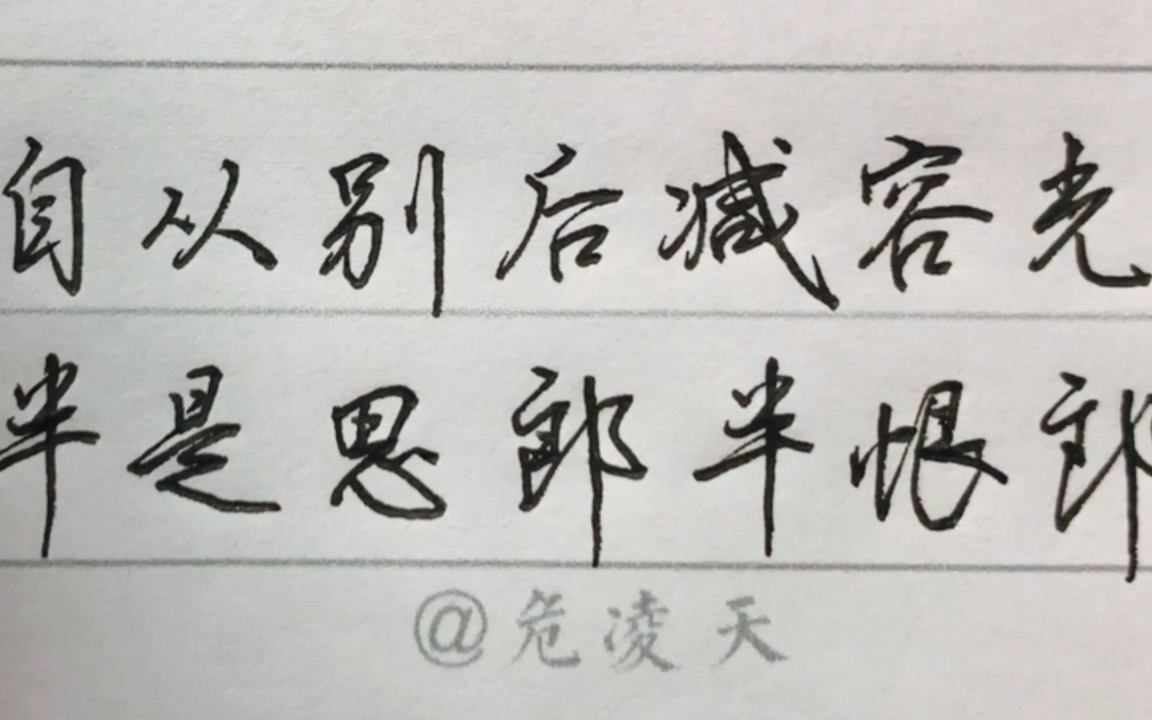 自从别后减容光
半是思郎半恨郎
@危凌天